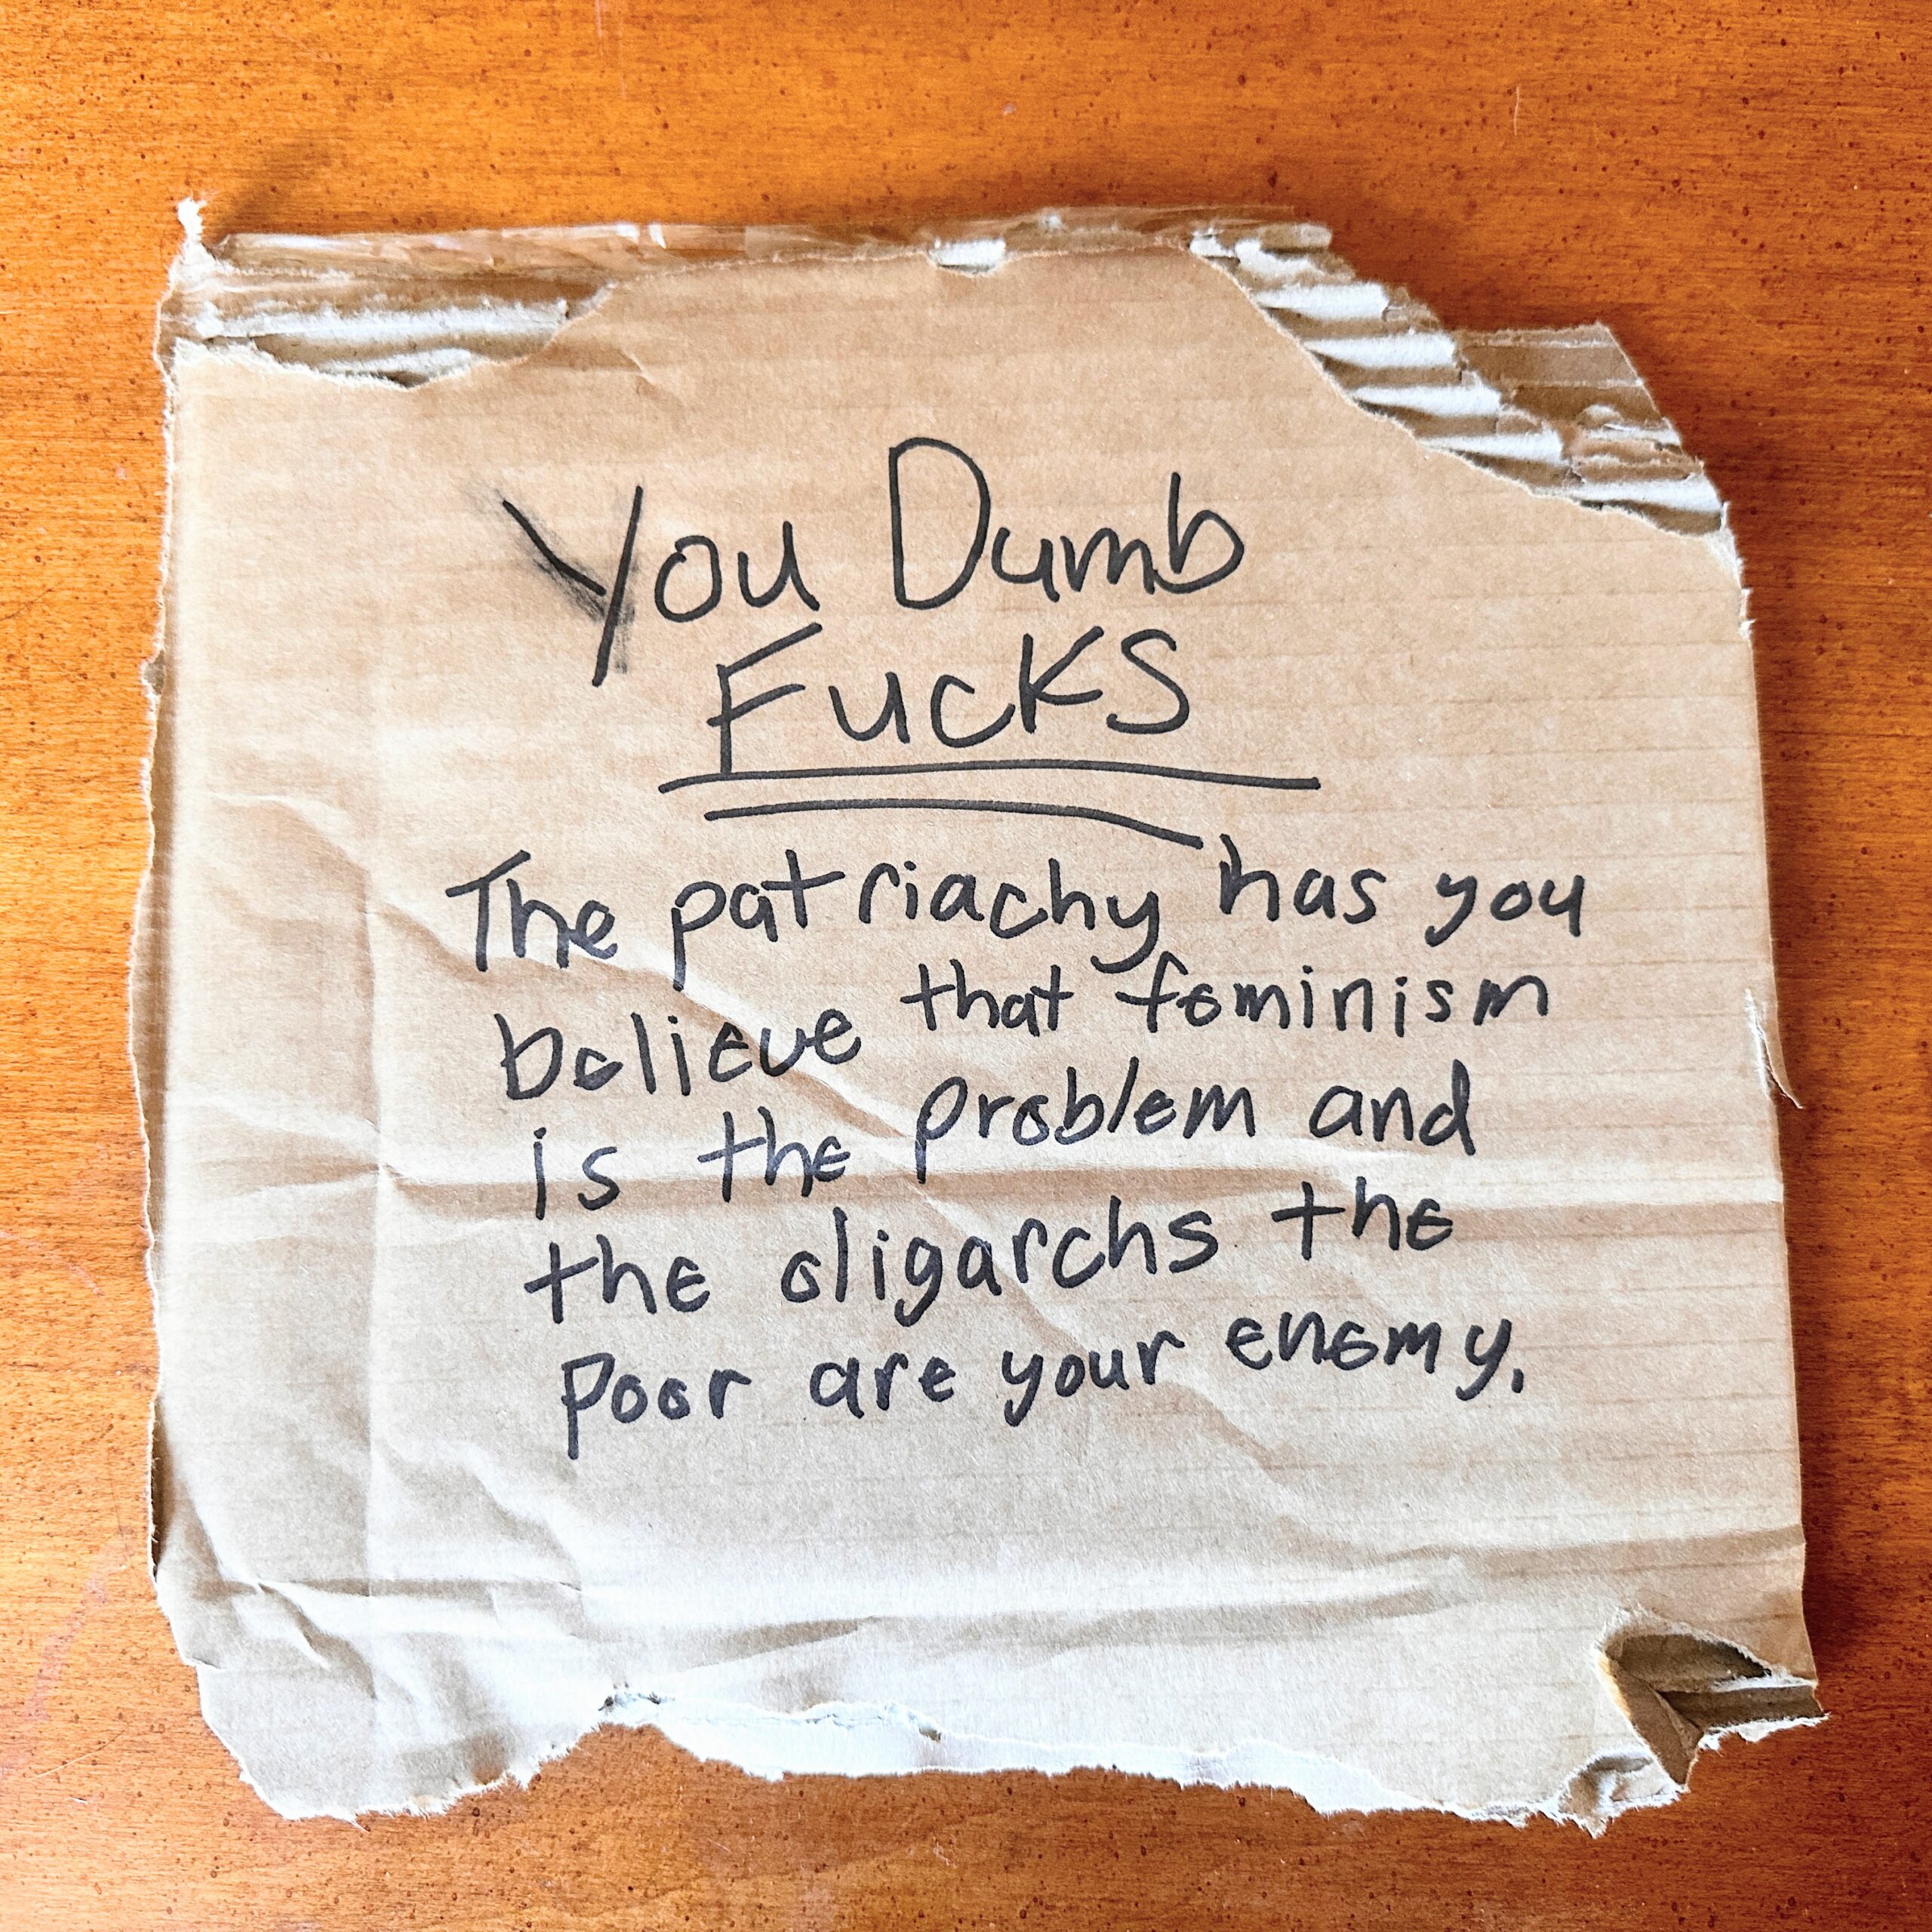 You Dumb
FUCKS
The patriachy has you
believe that feminism
is the problem and
the oligarchs the
poor are your enemy.